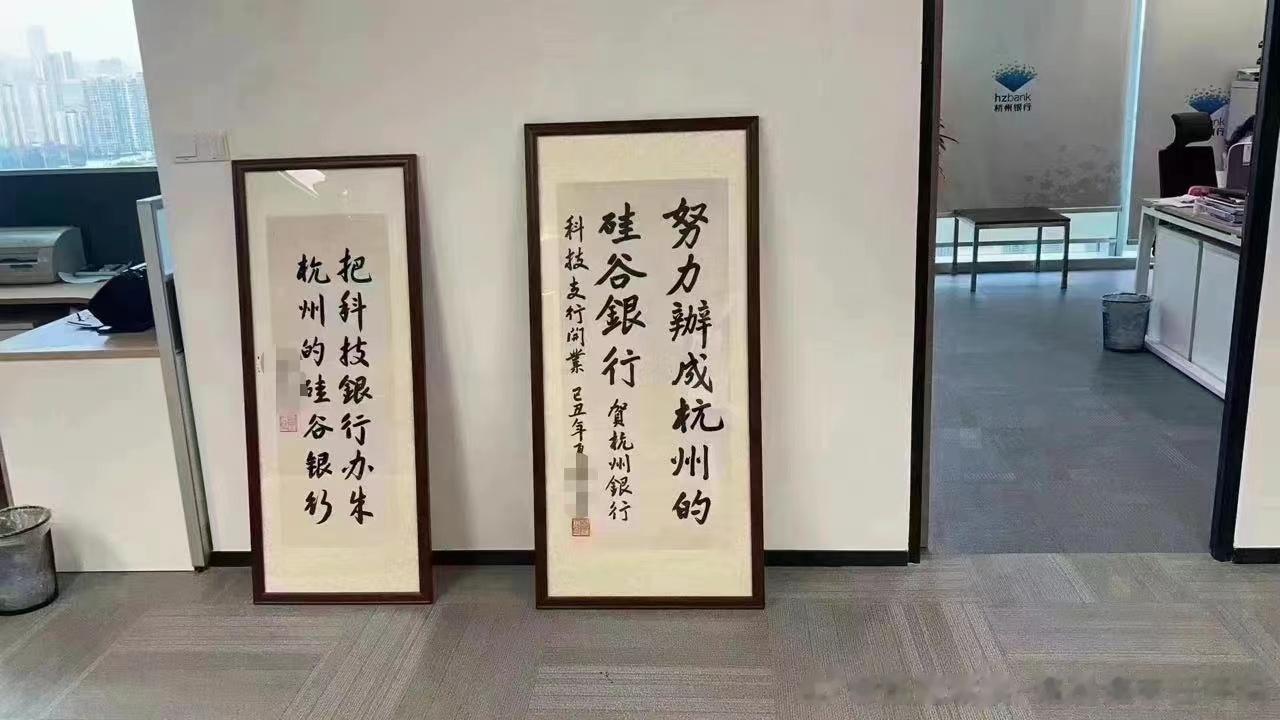 把科技銀行办成
杭州的硅谷银行
努力辦成杭州的
硅谷銀行 賀杭州銀行
科技支行開業 己丑年夏
hzbank
杭州银行